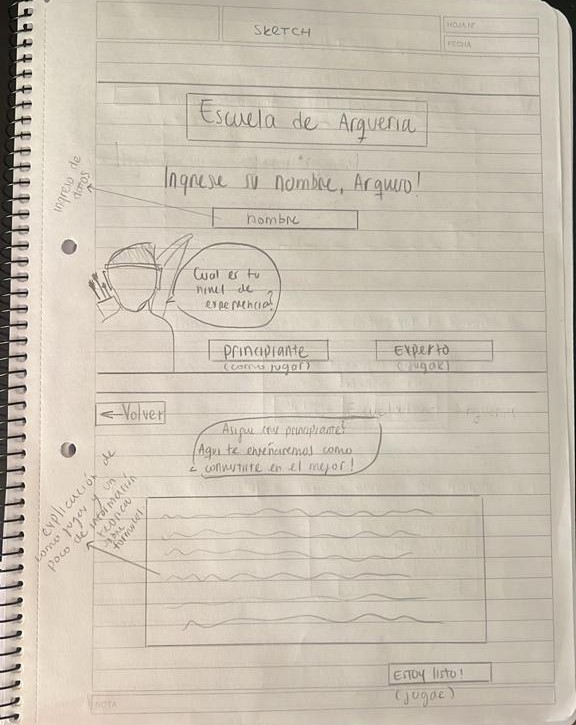 SKETCH
HOJA Nº
FECHA
Escuela de Arqueria
Ingrese su nombre, Arquero!
Ingreso de
datos
nombre
Cual es tu
nivel de
experiencia?
principiante
(como jugar)
Experto
(jugar)
← Volver
Asique sos principiante?
Aqui te enseñaremos como
convertirte en el mejor!
explicación de
como jugar y un
poco de información
teorica
formulas
Estoy listo!
(jugar)
NOTA